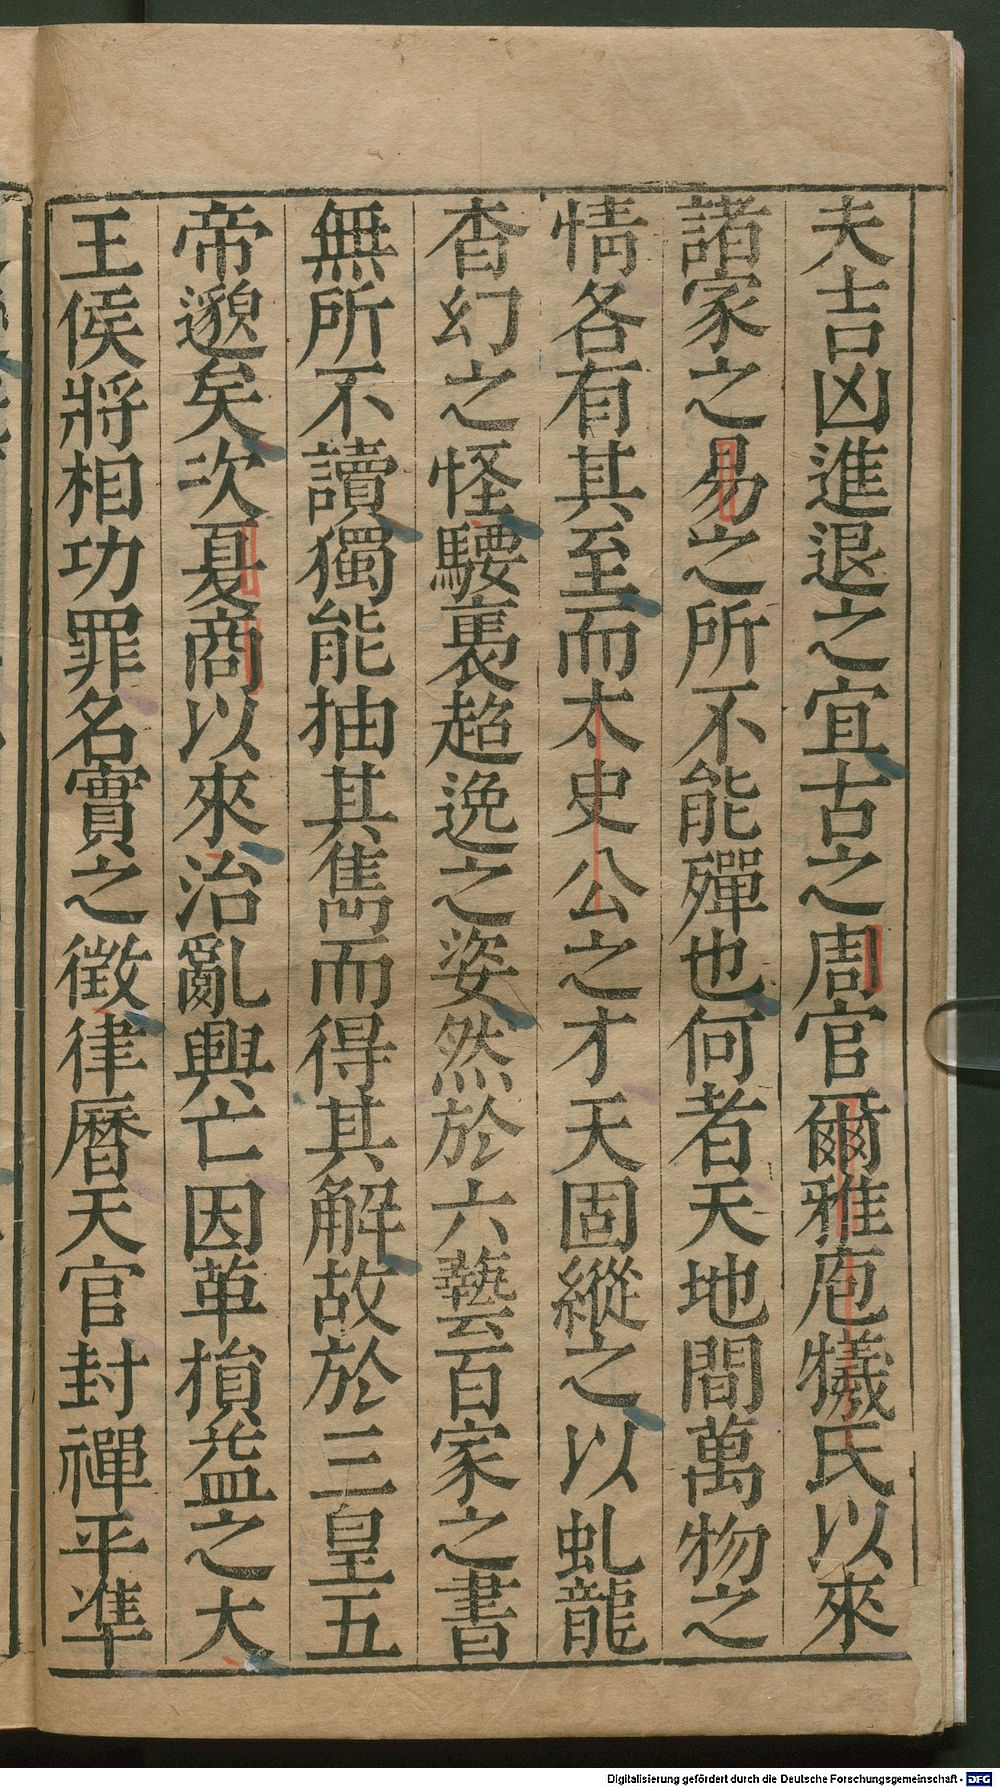 夫吉凶進退之宜古之周官爾雅庖犧氏以來
諸家之易之所不能殫也何者天地間萬物之
情各有其至而太史公之才天固縱之以虬龍
杳幻之怪騕褭超逸之姿然於六藝百家之書
無所不讀獨能抽其雋而得其解故於三皇五
帝邈矣次夏商以來治亂興亡因革損益之大
王侯將相功罪名實之徵律曆天官封禪平準
Digitalisierung gefördert durch die Deutsche Forschungsgemeinschaft - DFG